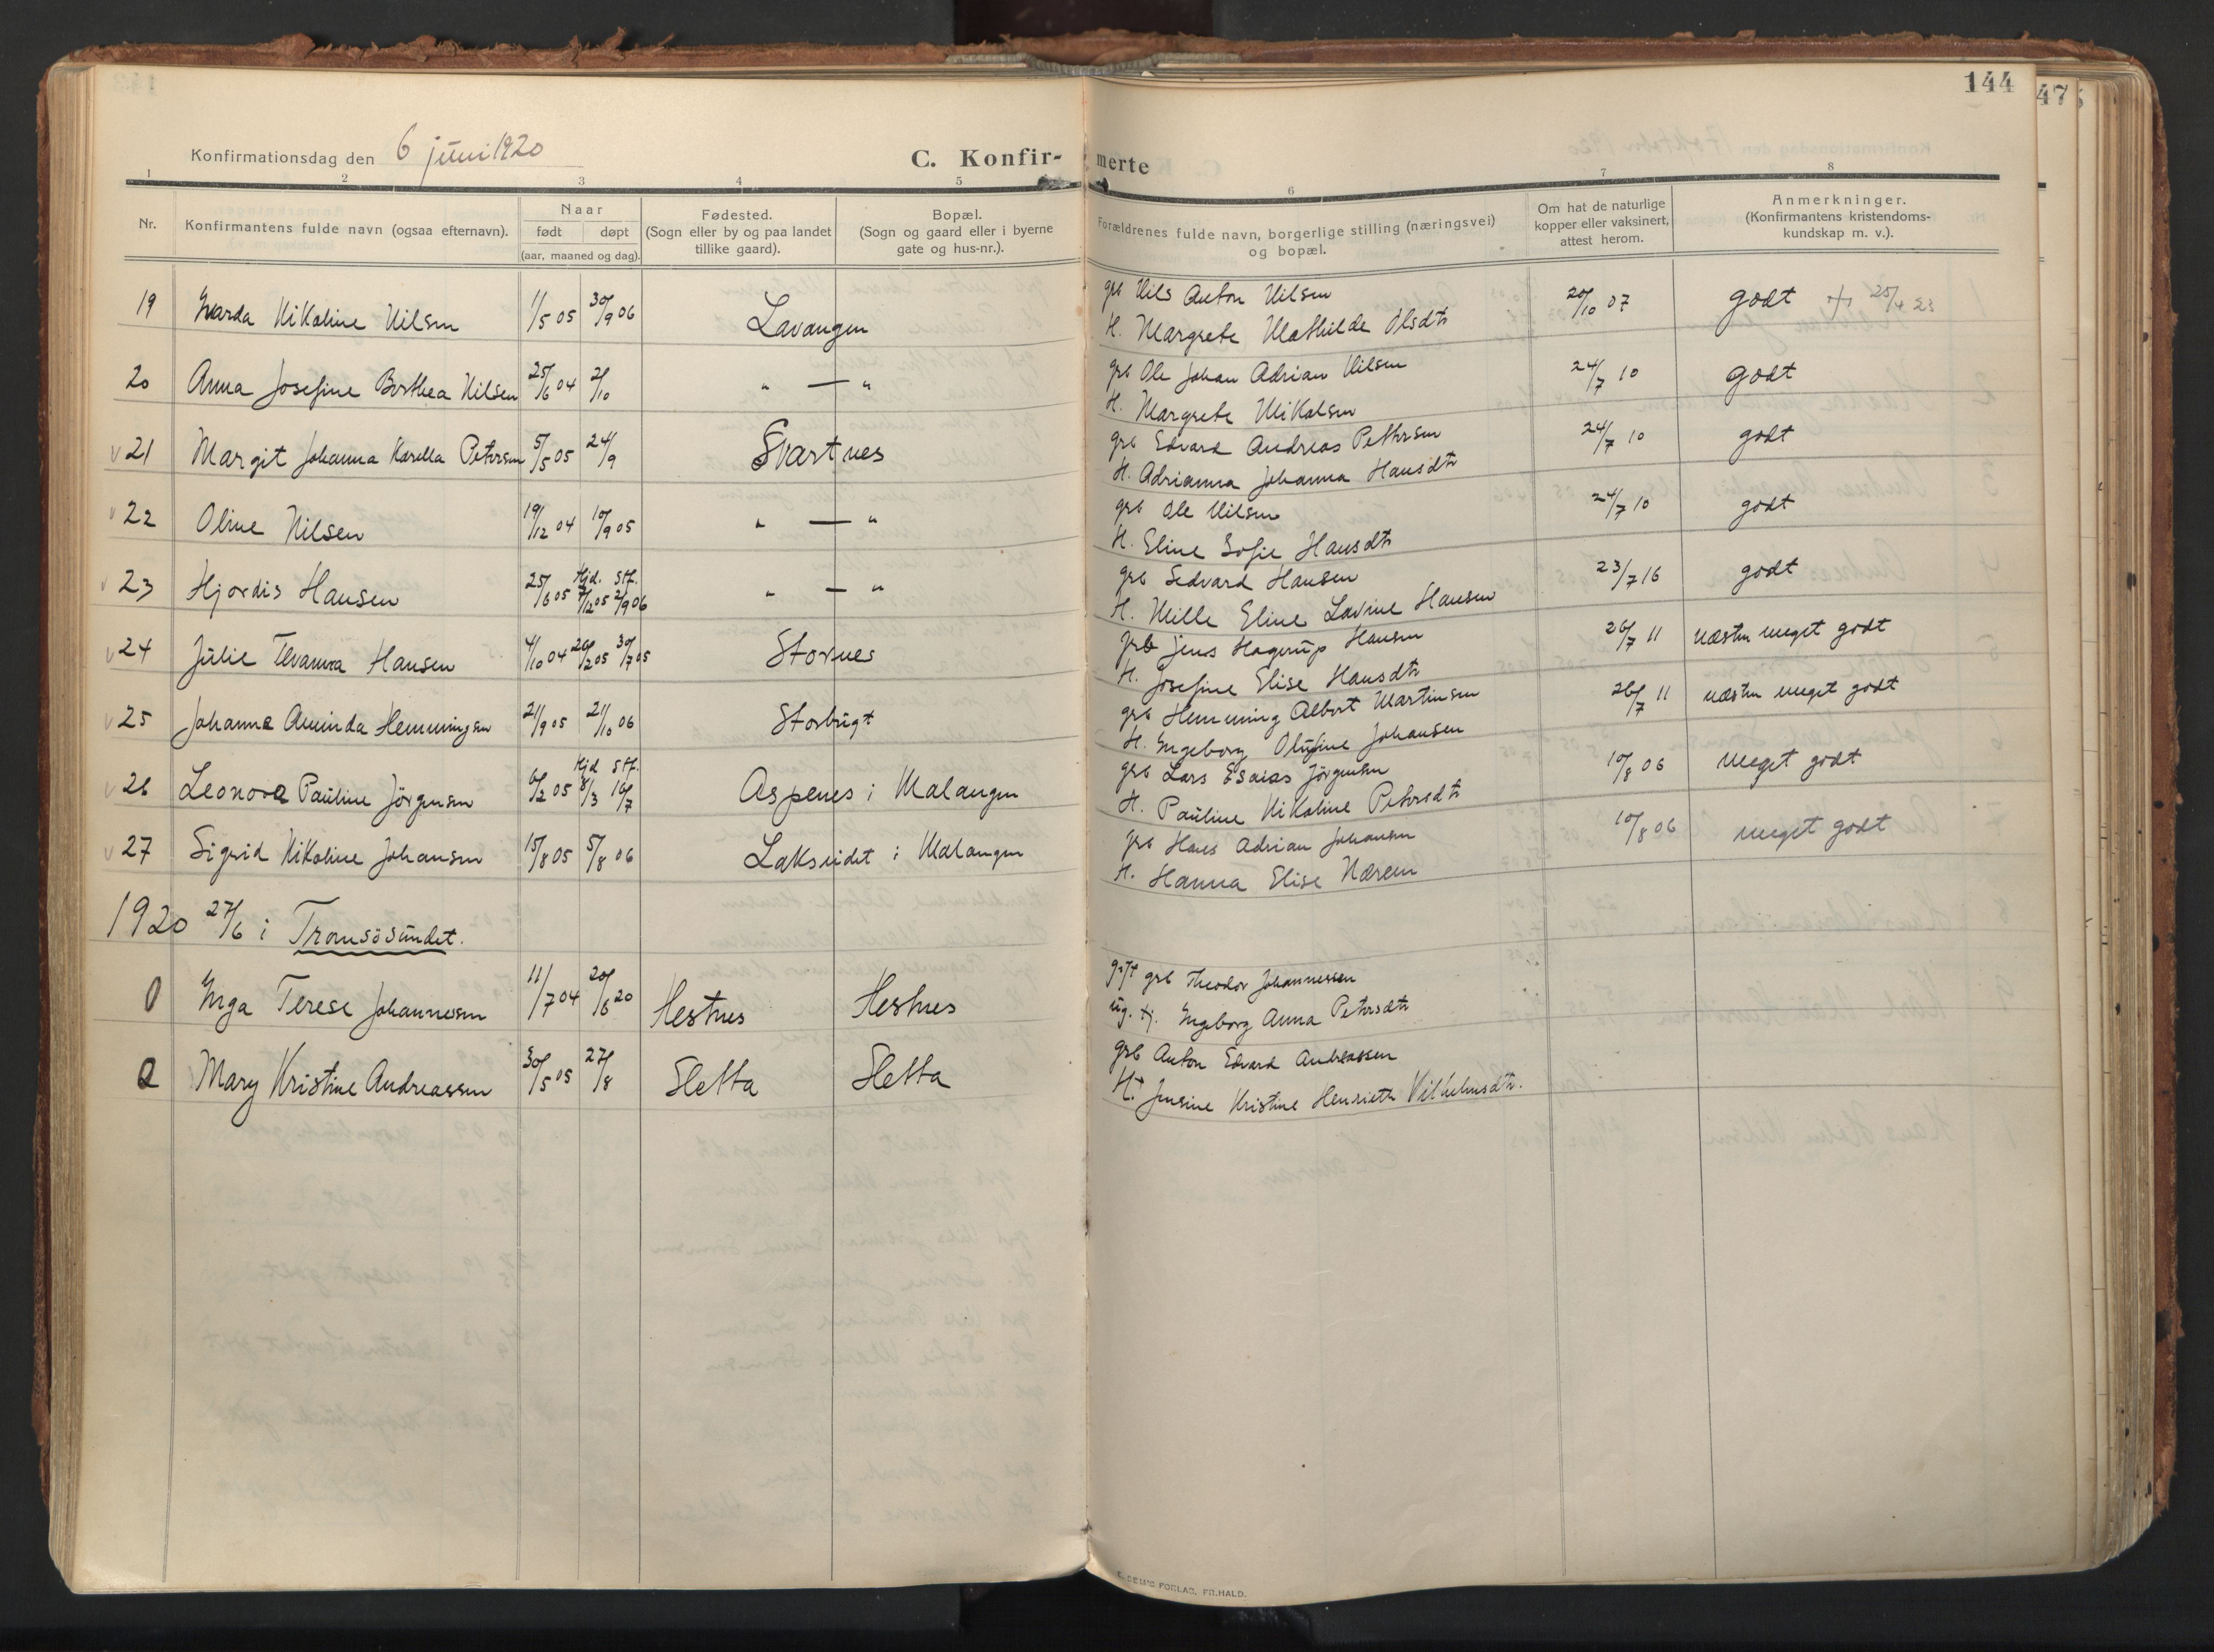 144
47
Konfirmationsdag den 6 juni 1920
C. Konfirmerte
1 2 3 4 5 6 7 8
Nr.
Konfirmantens fulde navn (ogsaa efternavn).
Naar
født døpt
(aar, maaned og dag).
Fødested.
(Sogn eller by og paa landet
tillike gaard).
Bopæl.
(Sogn og gaard eller i byerne
gate og hus-nr.).
Forældrenes fulde navn, borgerlige stilling (næringsvei)
og bopæl.
Om hat de naturlige
kopper eller vaksinert,
attest herom.
Anmerkninger.
(Konfirmantens kristendoms-
kundskap m. v.).
19 Nikoline Nilsen 1/5 05 30/9 06 Lavangen grb Nils Anton Nilsen 20/10 07 godt 25/4 23
H. Margrete Mathilde Olsdtr
20 Anna Josefine Berthea Nilsen 25/6 04 2/10 " — " grb Ole Johan Adrian Nilsen 24/7 10 godt
H. Margrete Mikalsen
v 21 Margit Johanna Karella Petersen 5/5 05 24/9 Svartnes grb Edvard Andreas Pettersen 24/7 10 godt
H. Adrianna Johanna Hansdtr
v 22 Oline Nilsen 19/12 04 10/9 05 " — " grb Ole Nilsen 24/7 10 godt
H. Eline Sofie Hansdtr
v 23 Hjordis Hansen 25/6 05 Hjd. 7/12 05 Stf. 2/9 06 " — " grb Sedvard Hansen 23/7 16 godt
H. Mille Eline Lavine Hansen
v 24 Julie Hansen 4/10 04 20/2 05 30/7 05 Stornes grb Jens Hagerup Hansen 26/7 11 næsten meget godt
H. Josefine Elise Hansdtr
v 25 Johanna Aminda Hemmingsen 21/9 05 21/10 06 Storbugt grb Hemming Albert Martinsen 26/7 11 næsten meget godt
H. Ingeborg Olufine Johansen
v 26 Leonora Pauline Jörgensen 6/2 05 Hjd 8/3 Stf. 16/7 Aspenes i Malangen grb Lars Esaias Jörgensen 10/8 06 meget godt
H. Pauline Nikoline Petersdtr
v 27 Sigrid Nikoline Johansen 15/8 05 5/8 06 Lakseidet i Malangen grb Hans Adrian Johansen 10/8 06 meget godt
H. Hanna Elise Nærem
1920 27/6 i Tromsösundet.
Inga Terese Johannessen 11/7 04 20/6 20 Hestnes Hestnes gift grb Theodor Johannessen
ug. Ingeborg Anna Petersdtr
2 Mary Kristine Andreassen 30/5 05 27/8 Sletta Sletta grb Anton Edvard Andreassen
H. Jensine Kristine Henriette Vilhelmsdtr.
FORLAG, FR.HALD.